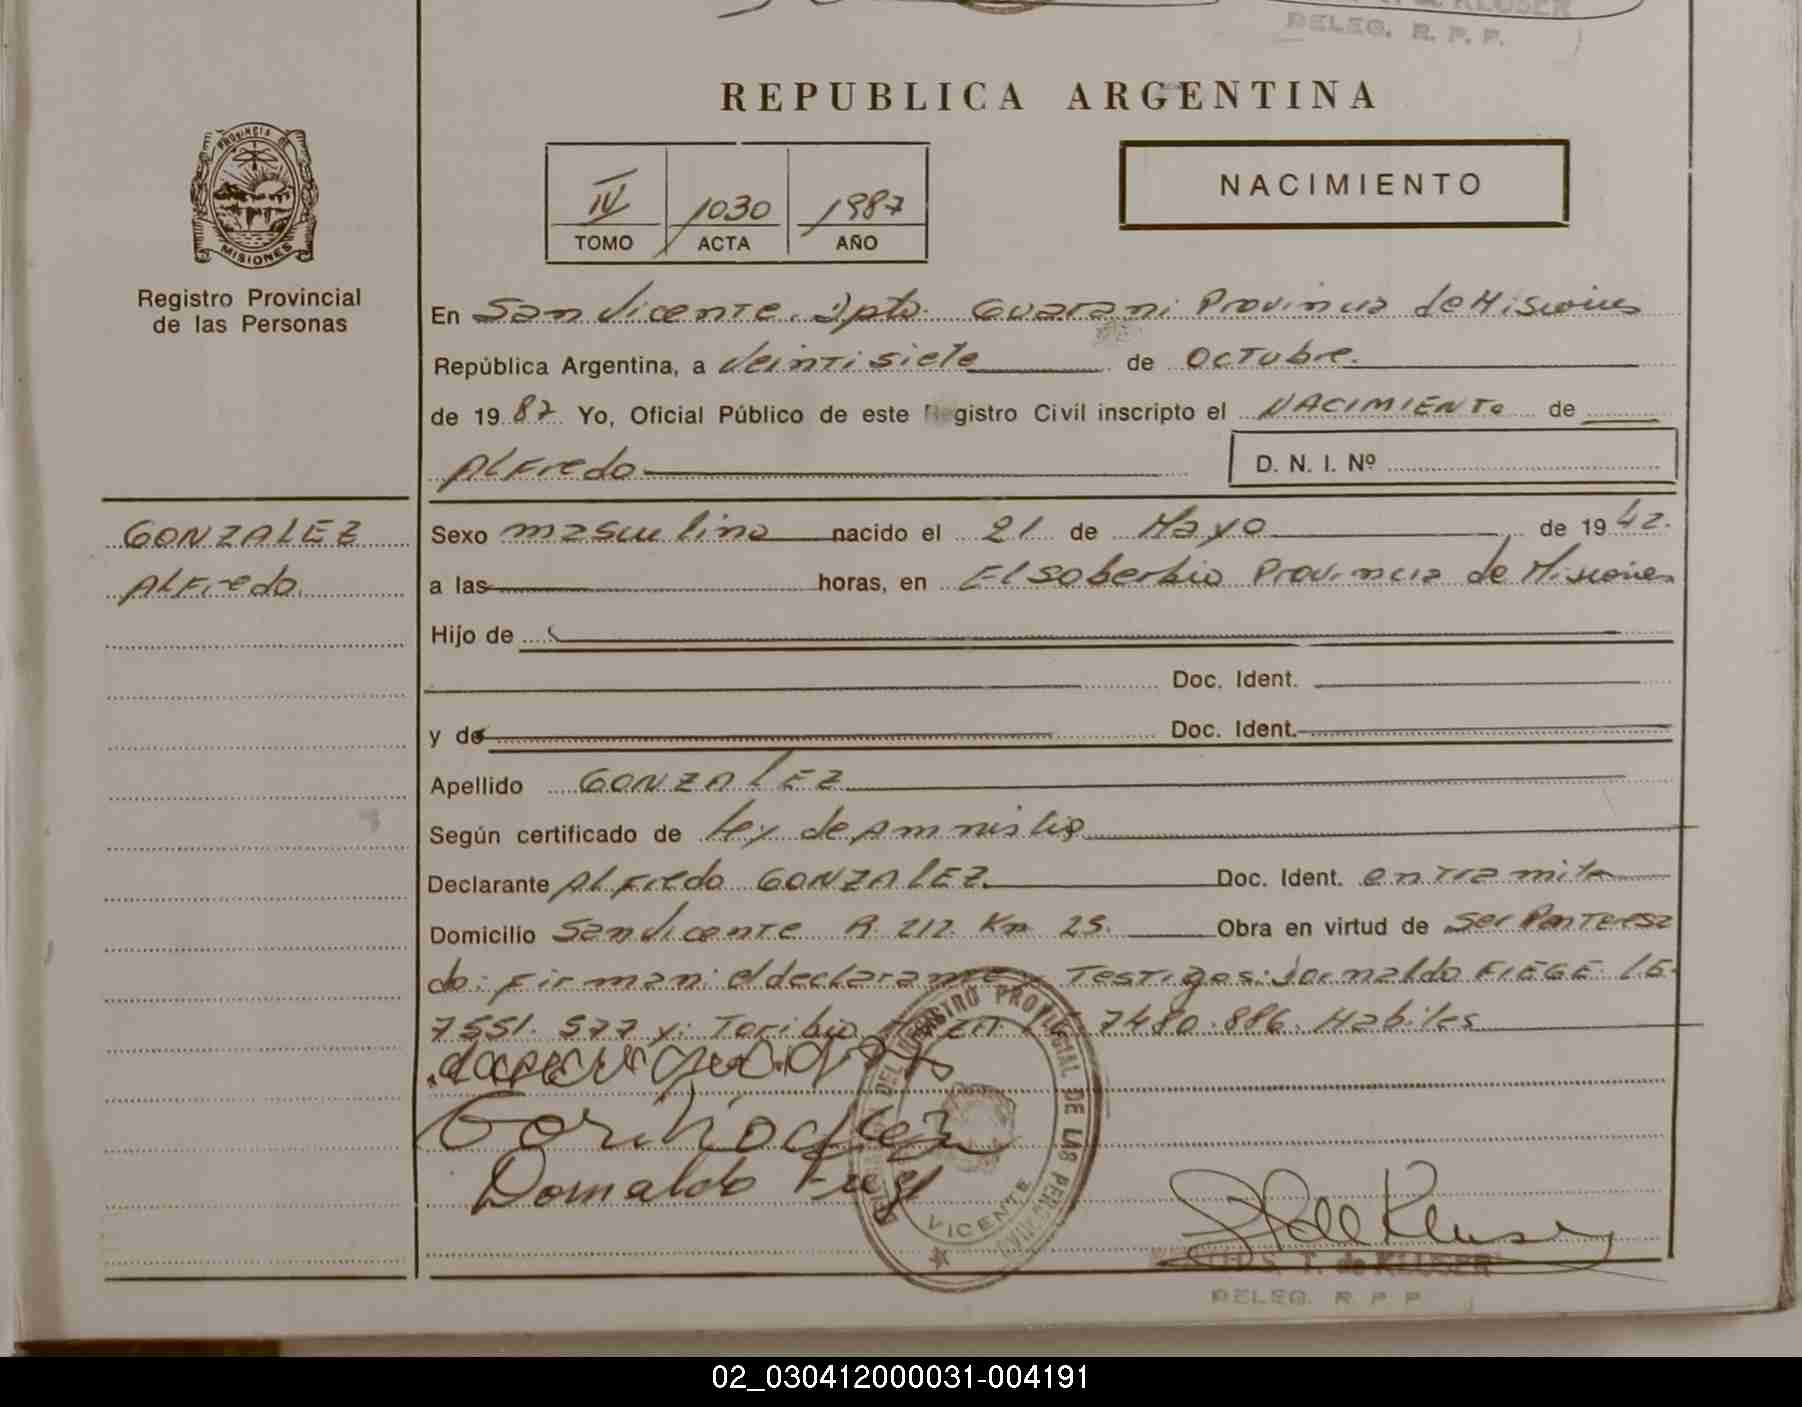 KLUSER
DELEG. R. P. P.
REPUBLICA ARGENTINA
IV 1030 1987
TOMO ACTA AÑO
NACIMIENTO
PROVINCIA DE
MISIONES
Registro Provincial
de las Personas
En San Vicente. Dpto. Guarani Provincia de Misiones
República Argentina, a Veintisiete de Octubre.
de 1987. Yo, Oficial Público de este Registro Civil inscripto el NACIMIENTO de
Alfredo
D. N. I. Nº
GONZALEZ
Alfredo.
Sexo masculino nacido el 21 de Mayo de 1942.
a las horas, en El Soberbio Provincia de Misiones
Hijo de
Doc. Ident.
y de Doc. Ident.
Apellido GONZALEZ
Según certificado de Ley de Amnistia
Declarante Alfredo GONZALEZ. Doc. Ident. en tramite
Domicilio San Vicente R. 212 Km 25. Obra en virtud de ser
do: Firman: el declarante y Testigos: FIEGE LE.
7551.577 y: Toribio 7480.886. Habiles
DEL REGISTRO PROVINCIAL DE LAS PERSONAS
VICENTE
S. T. de KLUSER
DELEG. R P P
02_030412000031-004191